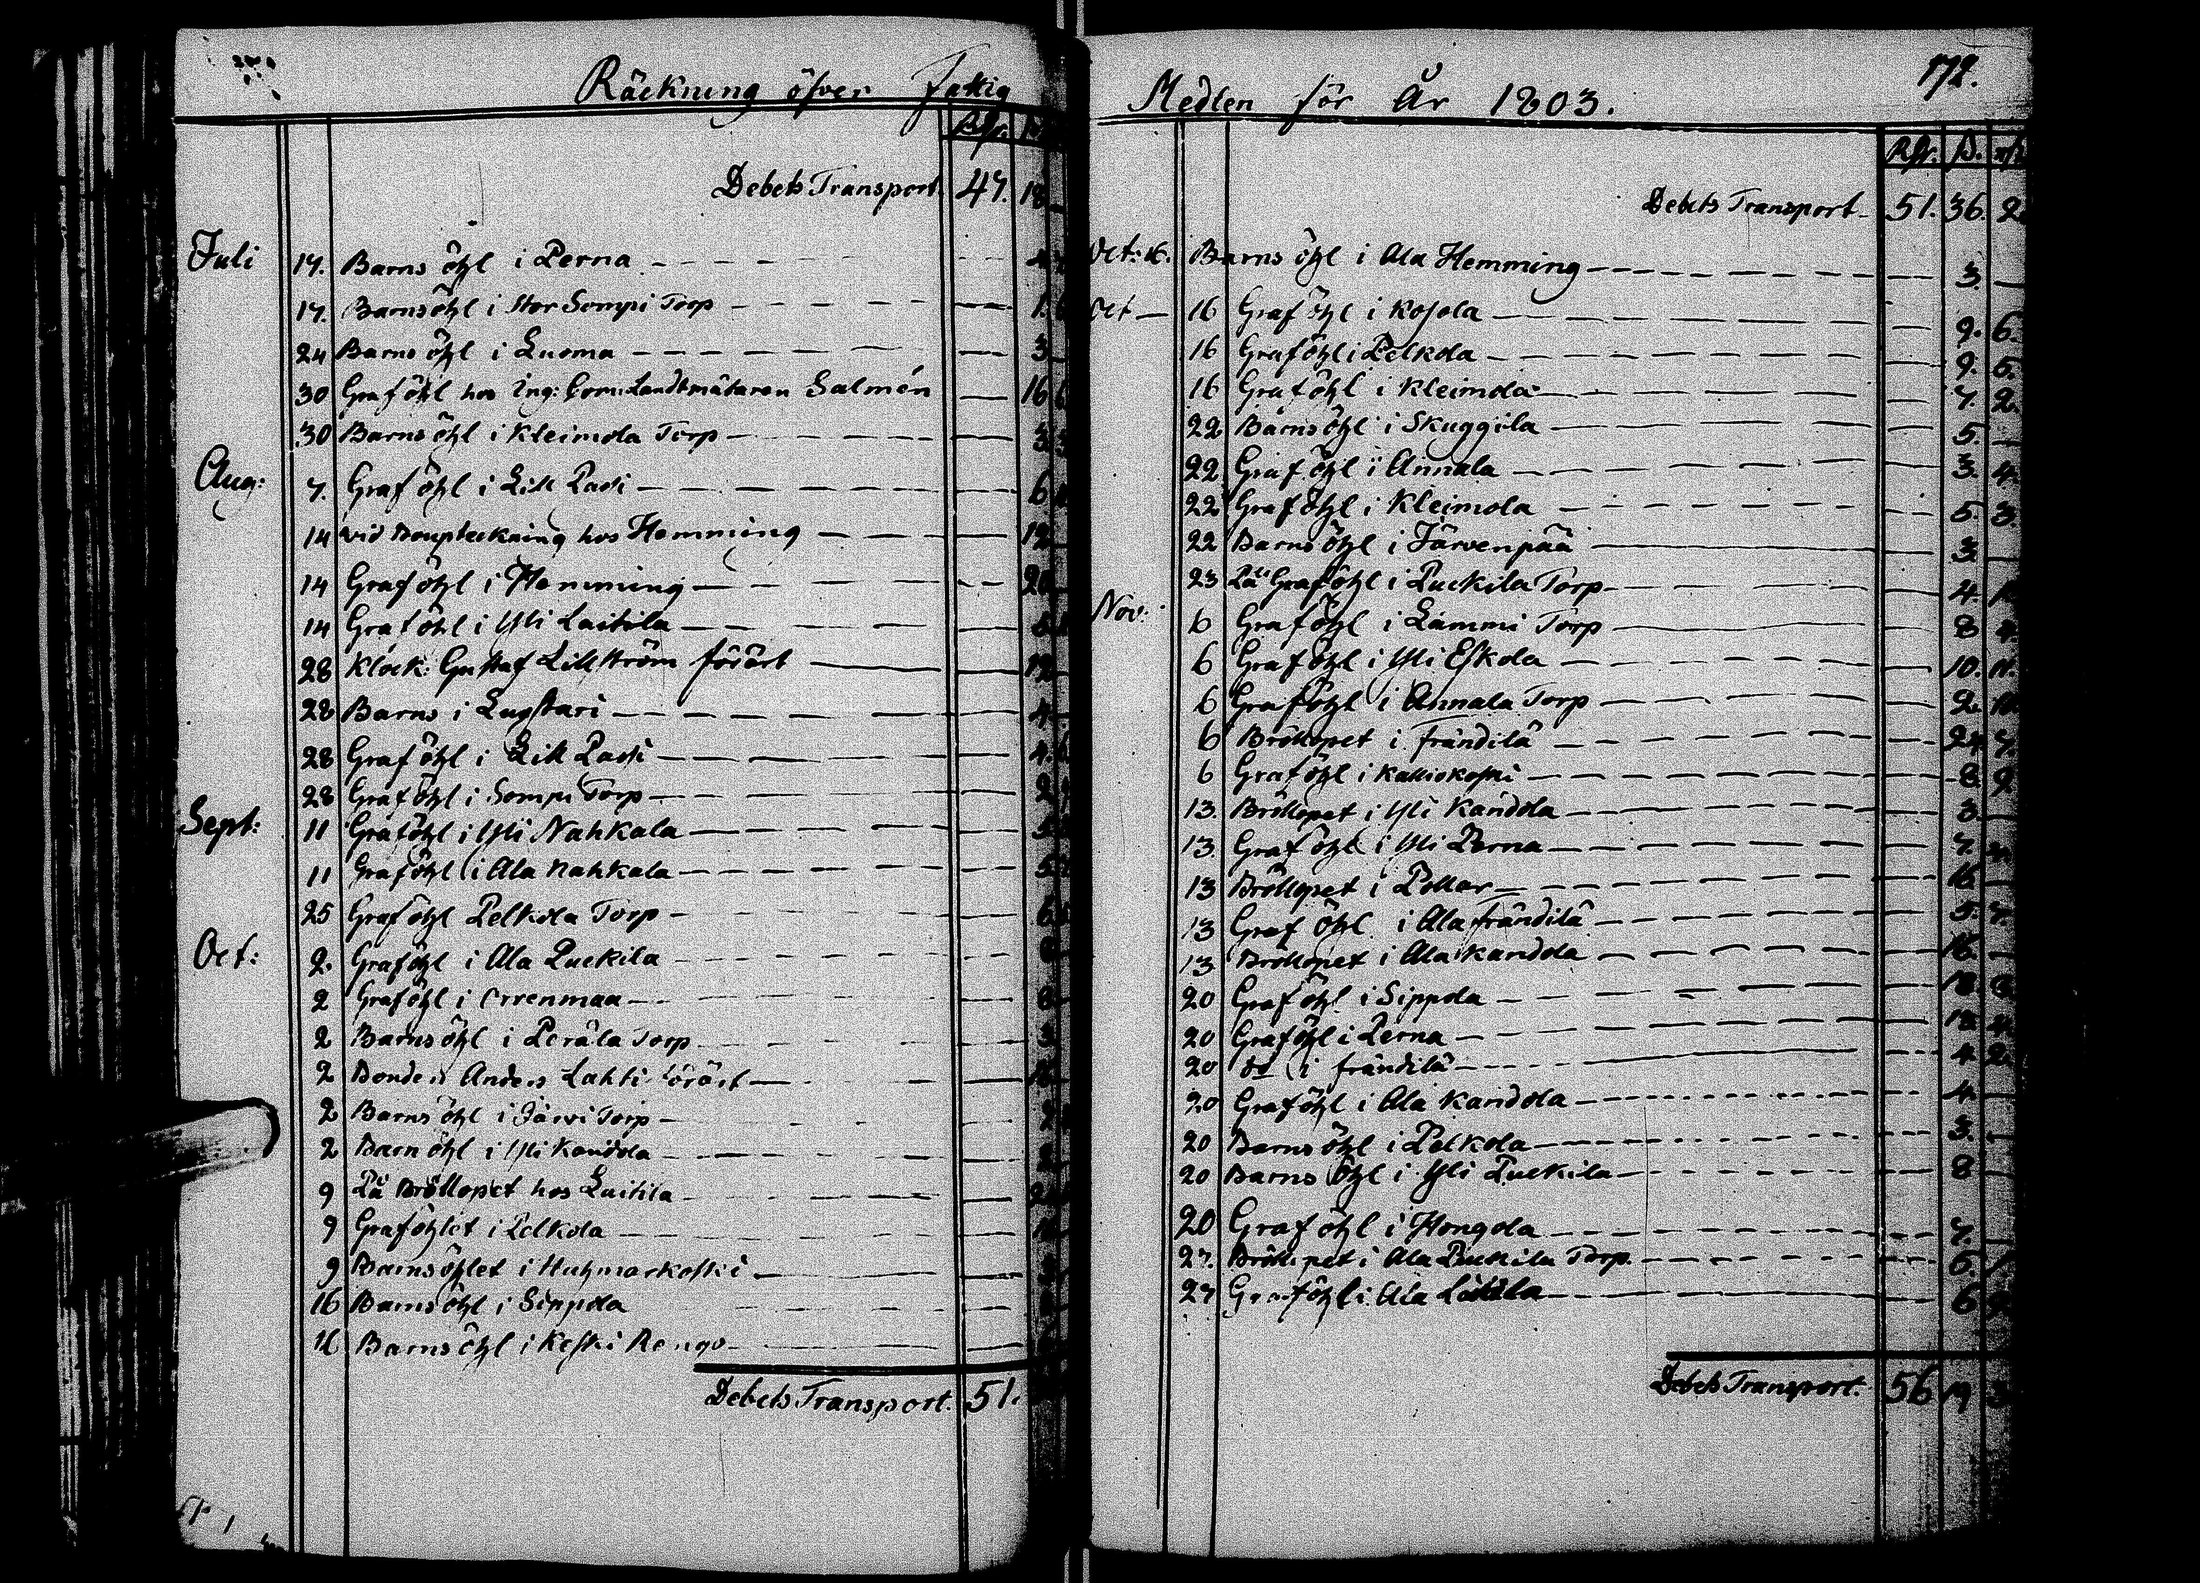 Räckning öfver Fattig
Rdr.
Debets Transport. 47. 18
Juli 17. Barns öhl i Perna
17. Barns öhl i Stor Sompi Torp 1.
24 Barns öhl i Luoma 3
30 Graf öhl hos Ing: Com: Landtmätaren Salmén 16
30 Barns öhl i Kleimola Torp 3
Aug: 7. Graf öhl i Lill Pasti 6
14 vid Boupteckning hos Hemming 12
14 Graf öhl i Hemming 20
14 Graf öhl i Yli Laitila
28 Klock: Gustaf Lillström förärt 12
28 Barns i Lugstari 4
28 Graf öhl i Lill Pasti 4.
28 Graf öhl i Sompi Torp 2
Sept: 11 Graf öhl i Yli Nahkala 5
11 Graf öhl i Ala Nahkala 5
25 Graf öhl Pelkola Torp 6
Oct: 2. Graf öhl i Ala Puckila
2 Graf öhl i Orrenmaa 8
2 Barns öhl i Peräla Torp 3
2 Bonden Anders Lahti förärt
2 Barns öhl i Järvi Torp
2 Barn öhl i Yli Kandola
9 På Bröllopet hos Laitila
9 Graföhlet i Pelkola
9 Barnsöhlet i Huhmarkoski
16 Barns öhl i Sippola
16 Barns öhl i Keski Rengo
Debets Transport. 51.
Medlen för År 1803.
172.
Rdr. S.
Debets Transport 51. 36. 2
Oct: 16. Barns öhl i Ala Hemming 3.
Oct 16 Graf öhl i Kosola 9. 6.
16 Graf öhl i Pelkola 9. 6.
16 Graf öhl i Kleimola 7. 2.
22 Barns öhl i Skuggila 5.
22 Graf öhl i Annala 3. 4.
22 Graf öhl i Kleimola 5. 3.
22 Barns öhl i Järvenpää 3
23 På Graföhl i Puckila Torp 4.
Nov: 6 Graf öhl i Lammi Torp 8 4.
6 Graf öhl i Yli Eskola 10.
6 Graf öhl i Annala Torp 2.
6 Bröllopet i Frändilä 24 7.
6 Graf öhl i Kalliokoski 8. 2
13. Bröllopet i Yli Kandola 3.
13. Graf öhl i Yli Perna 7.
13 Bröllopet i Pollar 16
13 Graf öhl i Ala Frändilä 5. 7.
13 Bröllopet i Ala Kandola 16.
20 Graf öhl i Sippola
20 Graf öhl i Perna
20 do i Frändilä 4. 2.
20 Graf öhl i Ala Kandola 4.
20 Barns öhl i Pelkola 3.
20 Barns öhl i Yli Puckila 8
20 Graf öhl i Hongola 7.
27. Bröllopet i Ala Puckila Torp.
27 Graf öhl i Ala Laitila 6
Debets Transport. 56 19 3